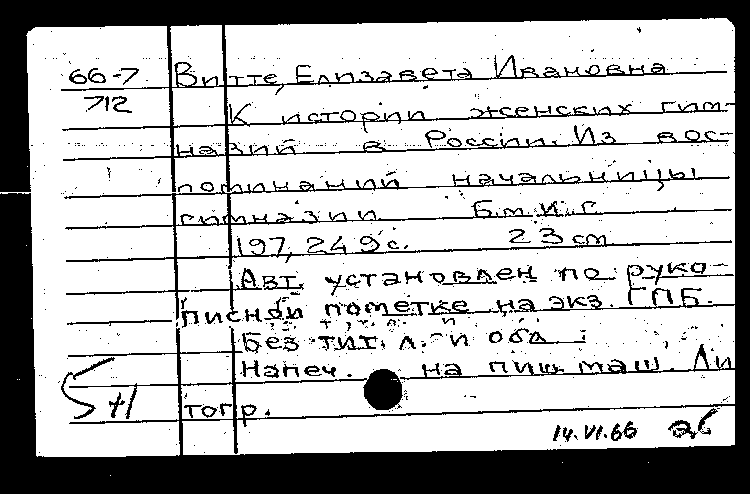 66-7 Витте, Елизавета Ивановна
712
К истории женских гим-
назий в России. Из вос-
поминаний начальницы
гимназии. Б.м.и.г.
197, 249 с. 23 cm
Авт. установлен по руко-
писной пометке на экз. ГПБ.
Без тит. л. и обл.
Напеч. на пиш. маш. Ли
тогр.
5 +1
14.VI.66